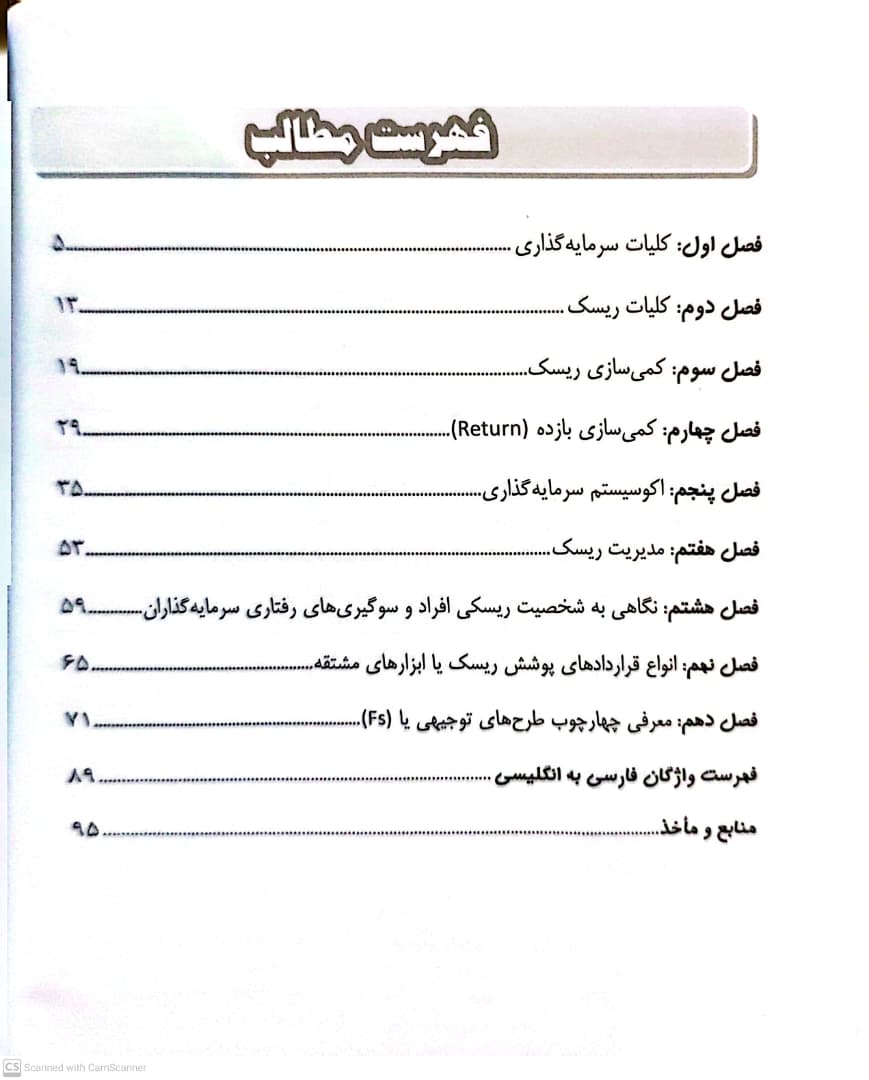 فهرست مطالب
فصل اول: کلیات سرمایه‌گذاری ................ ۵
فصل دوم: کلیات ریسک ................ ۱۳
فصل سوم: کمی‌سازی ریسک ................ ۱۹
فصل چهارم: کمی‌سازی بازده (Return) ................ ۲۹
فصل پنجم: اکوسیستم سرمایه‌گذاری ................ ۳۵
فصل هفتم: مدیریت ریسک ................ ۵۳
فصل هشتم: نگاهی به شخصیت ریسکی افراد و سوگیری‌های رفتاری سرمایه‌گذاران ................ ۵۹
فصل نهم: انواع قراردادهای پوشش ریسک یا ابزارهای مشتقه ................ ۶۵
فصل دهم: معرفی چهارچوب طرح‌های توجیهی یا (Fs) ................ ۷۱
فهرست واژگان فارسی به انگلیسی ................ ۸۹
منابع و مأخذ ................ ۹۵
CS Scanned with CamScanner